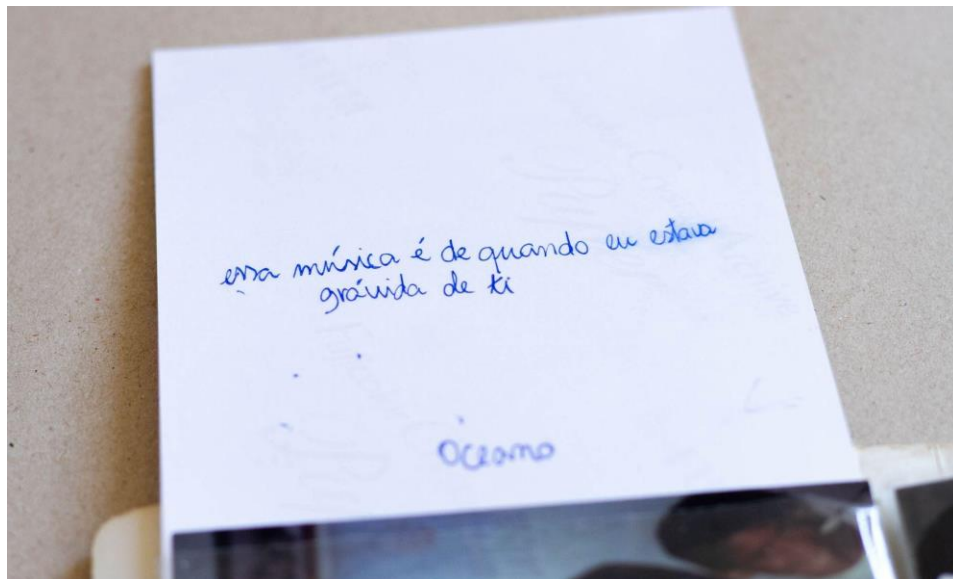 essa música é de quando eu estava
grávida de ti
oceano